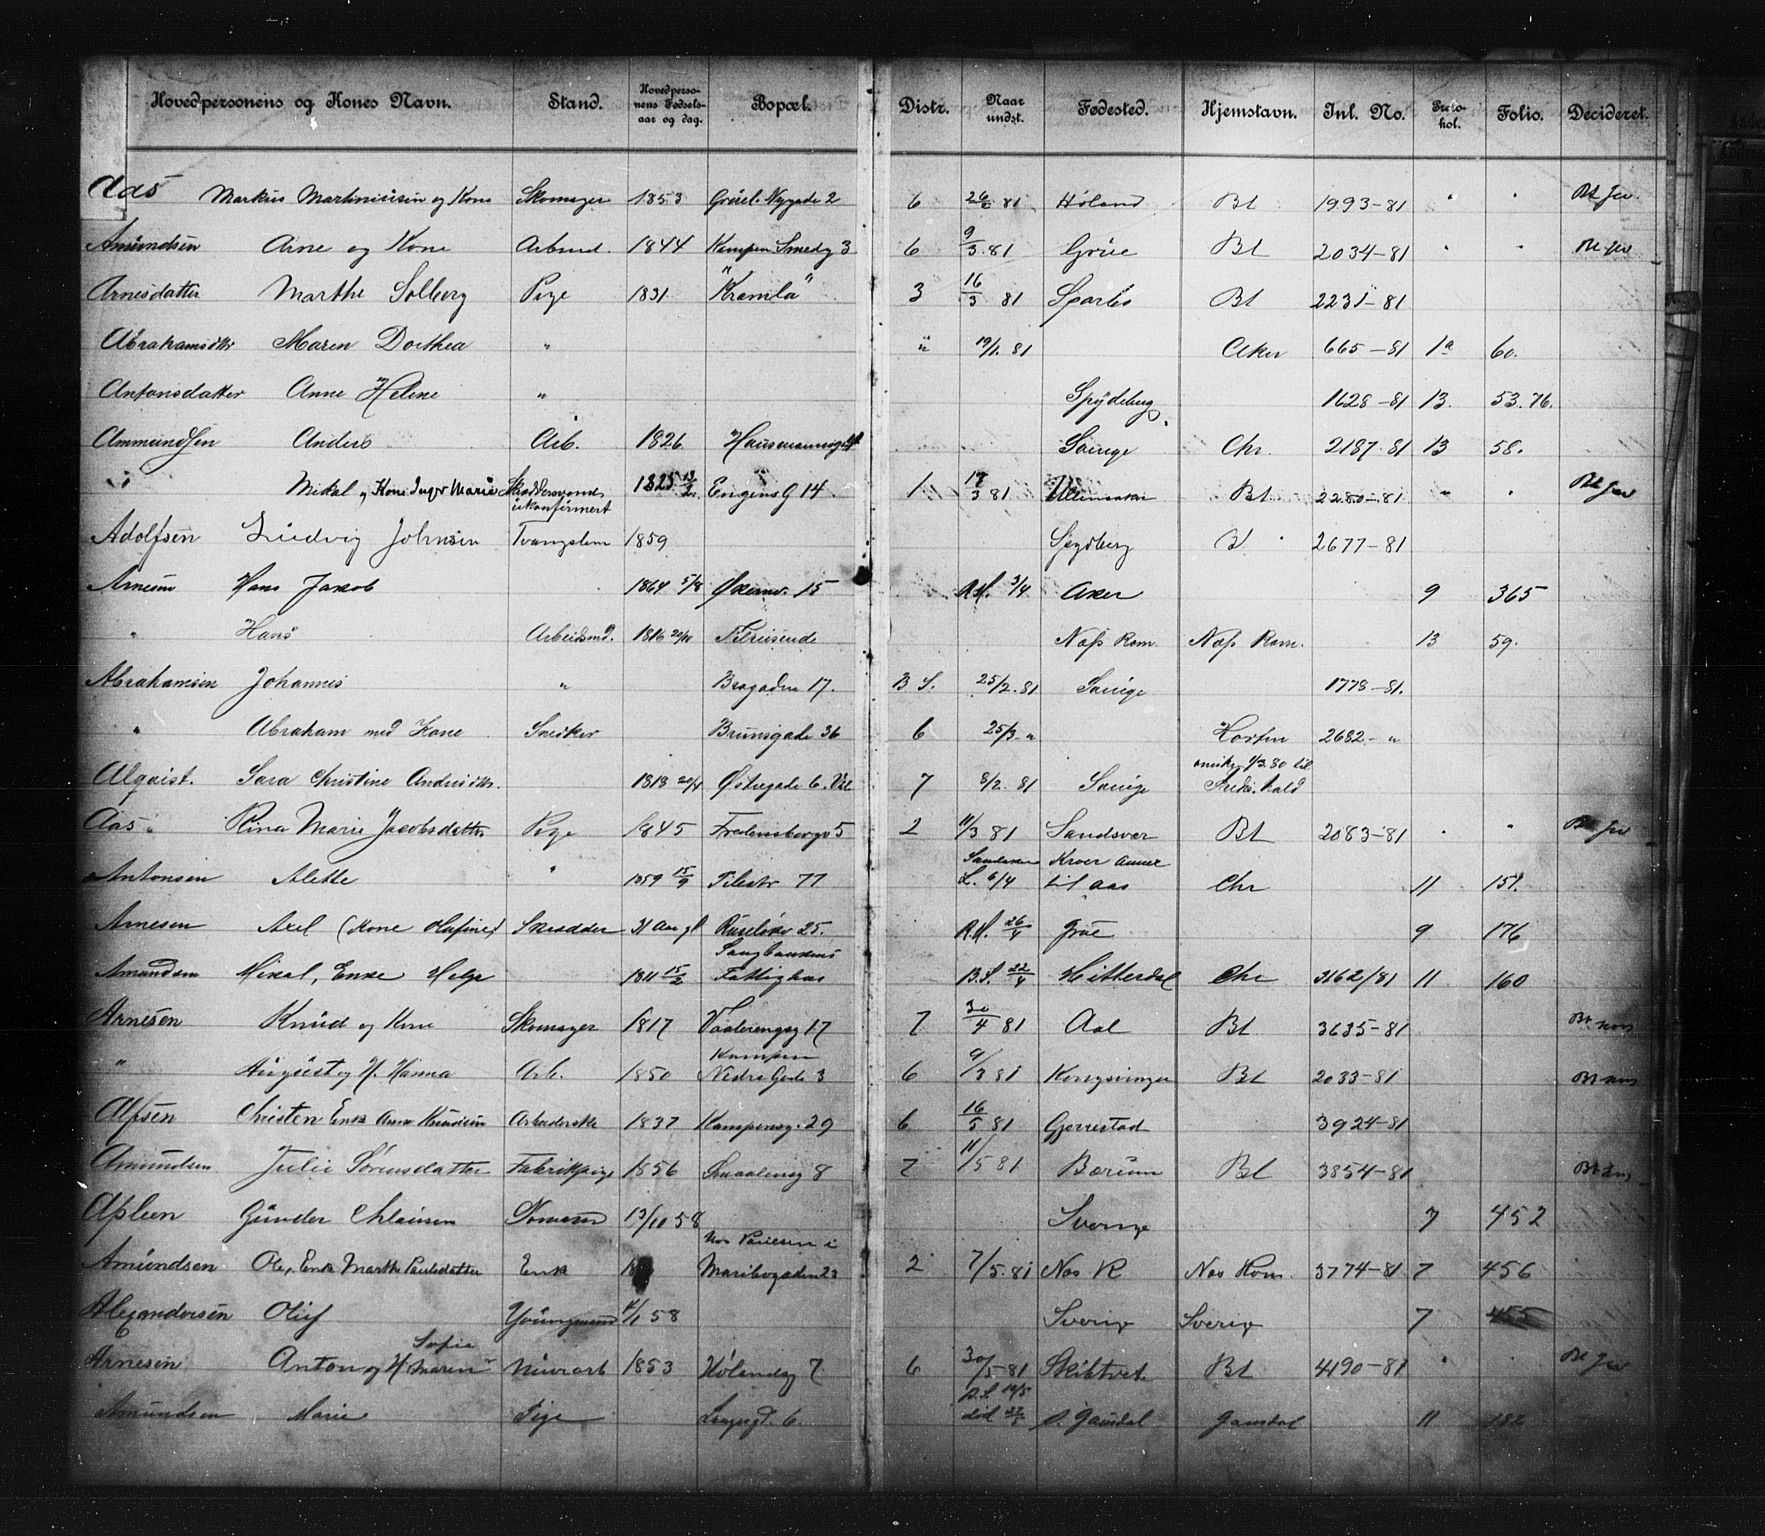 Hovedpersonens og Kones Navn. Stand. Hovedperso-nens Fødsels-aar og dag. Bopæl. Distr. Naar undst. Fødested. Hjemstavn. Inl. No. Proto-kol. Folio. Decideret.
Aas Markus Martiniusen og Kone Skomager 1853 Nygade 2 6 81 Høland Bt 1993-81 " " Bt
Amundsen Arne og Kone Arbmd. 1844 Kampen Smedg 3 6 9/3 81 Grue Bt 2034-81 " " Bt
Arnesdatter Marthe Solberg Pige 1831 "Kramla" 3 16/3 81 Sparbo Bt 2231-81
Abrahamsdtr Maren Dorthea " " 19/1. 81 Aker 665-81 1a 60.
Antonsdatter Anne Helene " Spydeberg 1628-81 13. 53.76.
Ammundsen Anders Arb. 1826 Sverige Chr. 2187-81 13 58.
" Mikal og Kone Inger Marie 1825 Engens G 14. 1 81 Ullensaker Bt 2280-81 " " Bt
ukonfirmert
Adolfsen Ludvig Johnsen Tvangslem 1859 Spydberg Bt 2677-81
Arnesen Hans Jakob 1864 5/8 Økernv. 15 R.H. 3/4 Aker 9 365
" Hans Arbeidsmd. 1816 Tilreisende Næss Rom. Næss Rom. 13 59.
Abrahamsen Johannes " Brogaden 17. B S. 25/2.81 Sverige 1778-81.
" Abraham med Kone Snedker Brunsgade 36 6 25/3 " Horten 2682- "
1/3 80 til
Alqvist. Sara Christine Andersdtr. 1818 20/4 Østregade 6. 7 8/2.81 Sverige Fredr.hald
Aas " Rina Marie Jacobsdatter Pige 1845 Fredensborgv 5 2 11/3 81 Sandsvær Bt 2083-81 " " Bt
Kroer annex
Antonsen Alette " 1859 15/9 Pilestr 77 L. 6/4 til Aas Chr 11 151.
Arnesen Axel (Kone Olufine) Skrædder 31 Aar gl Ruseløkv 25. R.H. 26/4 Grue 9 176
Sangbankens
Amundsen Mikal, Enke Helge 1811 15/2 Fattighus B.S. 22/4 Hitterdal Chr 3162/81 11 160
Arnesen Knud og Kone Skomager 1817 Vaalerengsg 17 7 30/4 81 Aal Bt 3635-81 Bt
Kampen
" August og H. Hanna Arb. 1850 Nedre Gade 3 6 9/3 81 Kongsvinger Bt 2033-81 Bt
Alfsen Christen Enke Anne Knudsen Arbeiderske 1837 Kampensg. 29 6 16/5 81 Gjerrestad 3924-81
Amundsen Julie Sørensdatter Fabrikpige 1856 Smaaleneg 8 7 11/5 81 Bærum Bt 3854-81 Bt
Gunder Clausen 13/10 58 Sverige 7 452
hos Paulsen i
Amundsen Ole, Enke Marthe Paulsdatter Enke Maribogaden 23 2 7/5.81 Nes R Nes Rom. 3774-81 7 456
Alexandersen Oluf 4/1 58 Sverig Sverig 7 455
Sofie
Arnesen Anton og H Maren Murarb 1853 Hølandsg 7 6 30/5 81 Skibtvet Bt 4190-81 " Bt
B.S. 19/5
Amundsen Marie Pige Langesgt. 6. død Gausdal Gausdal 11 182